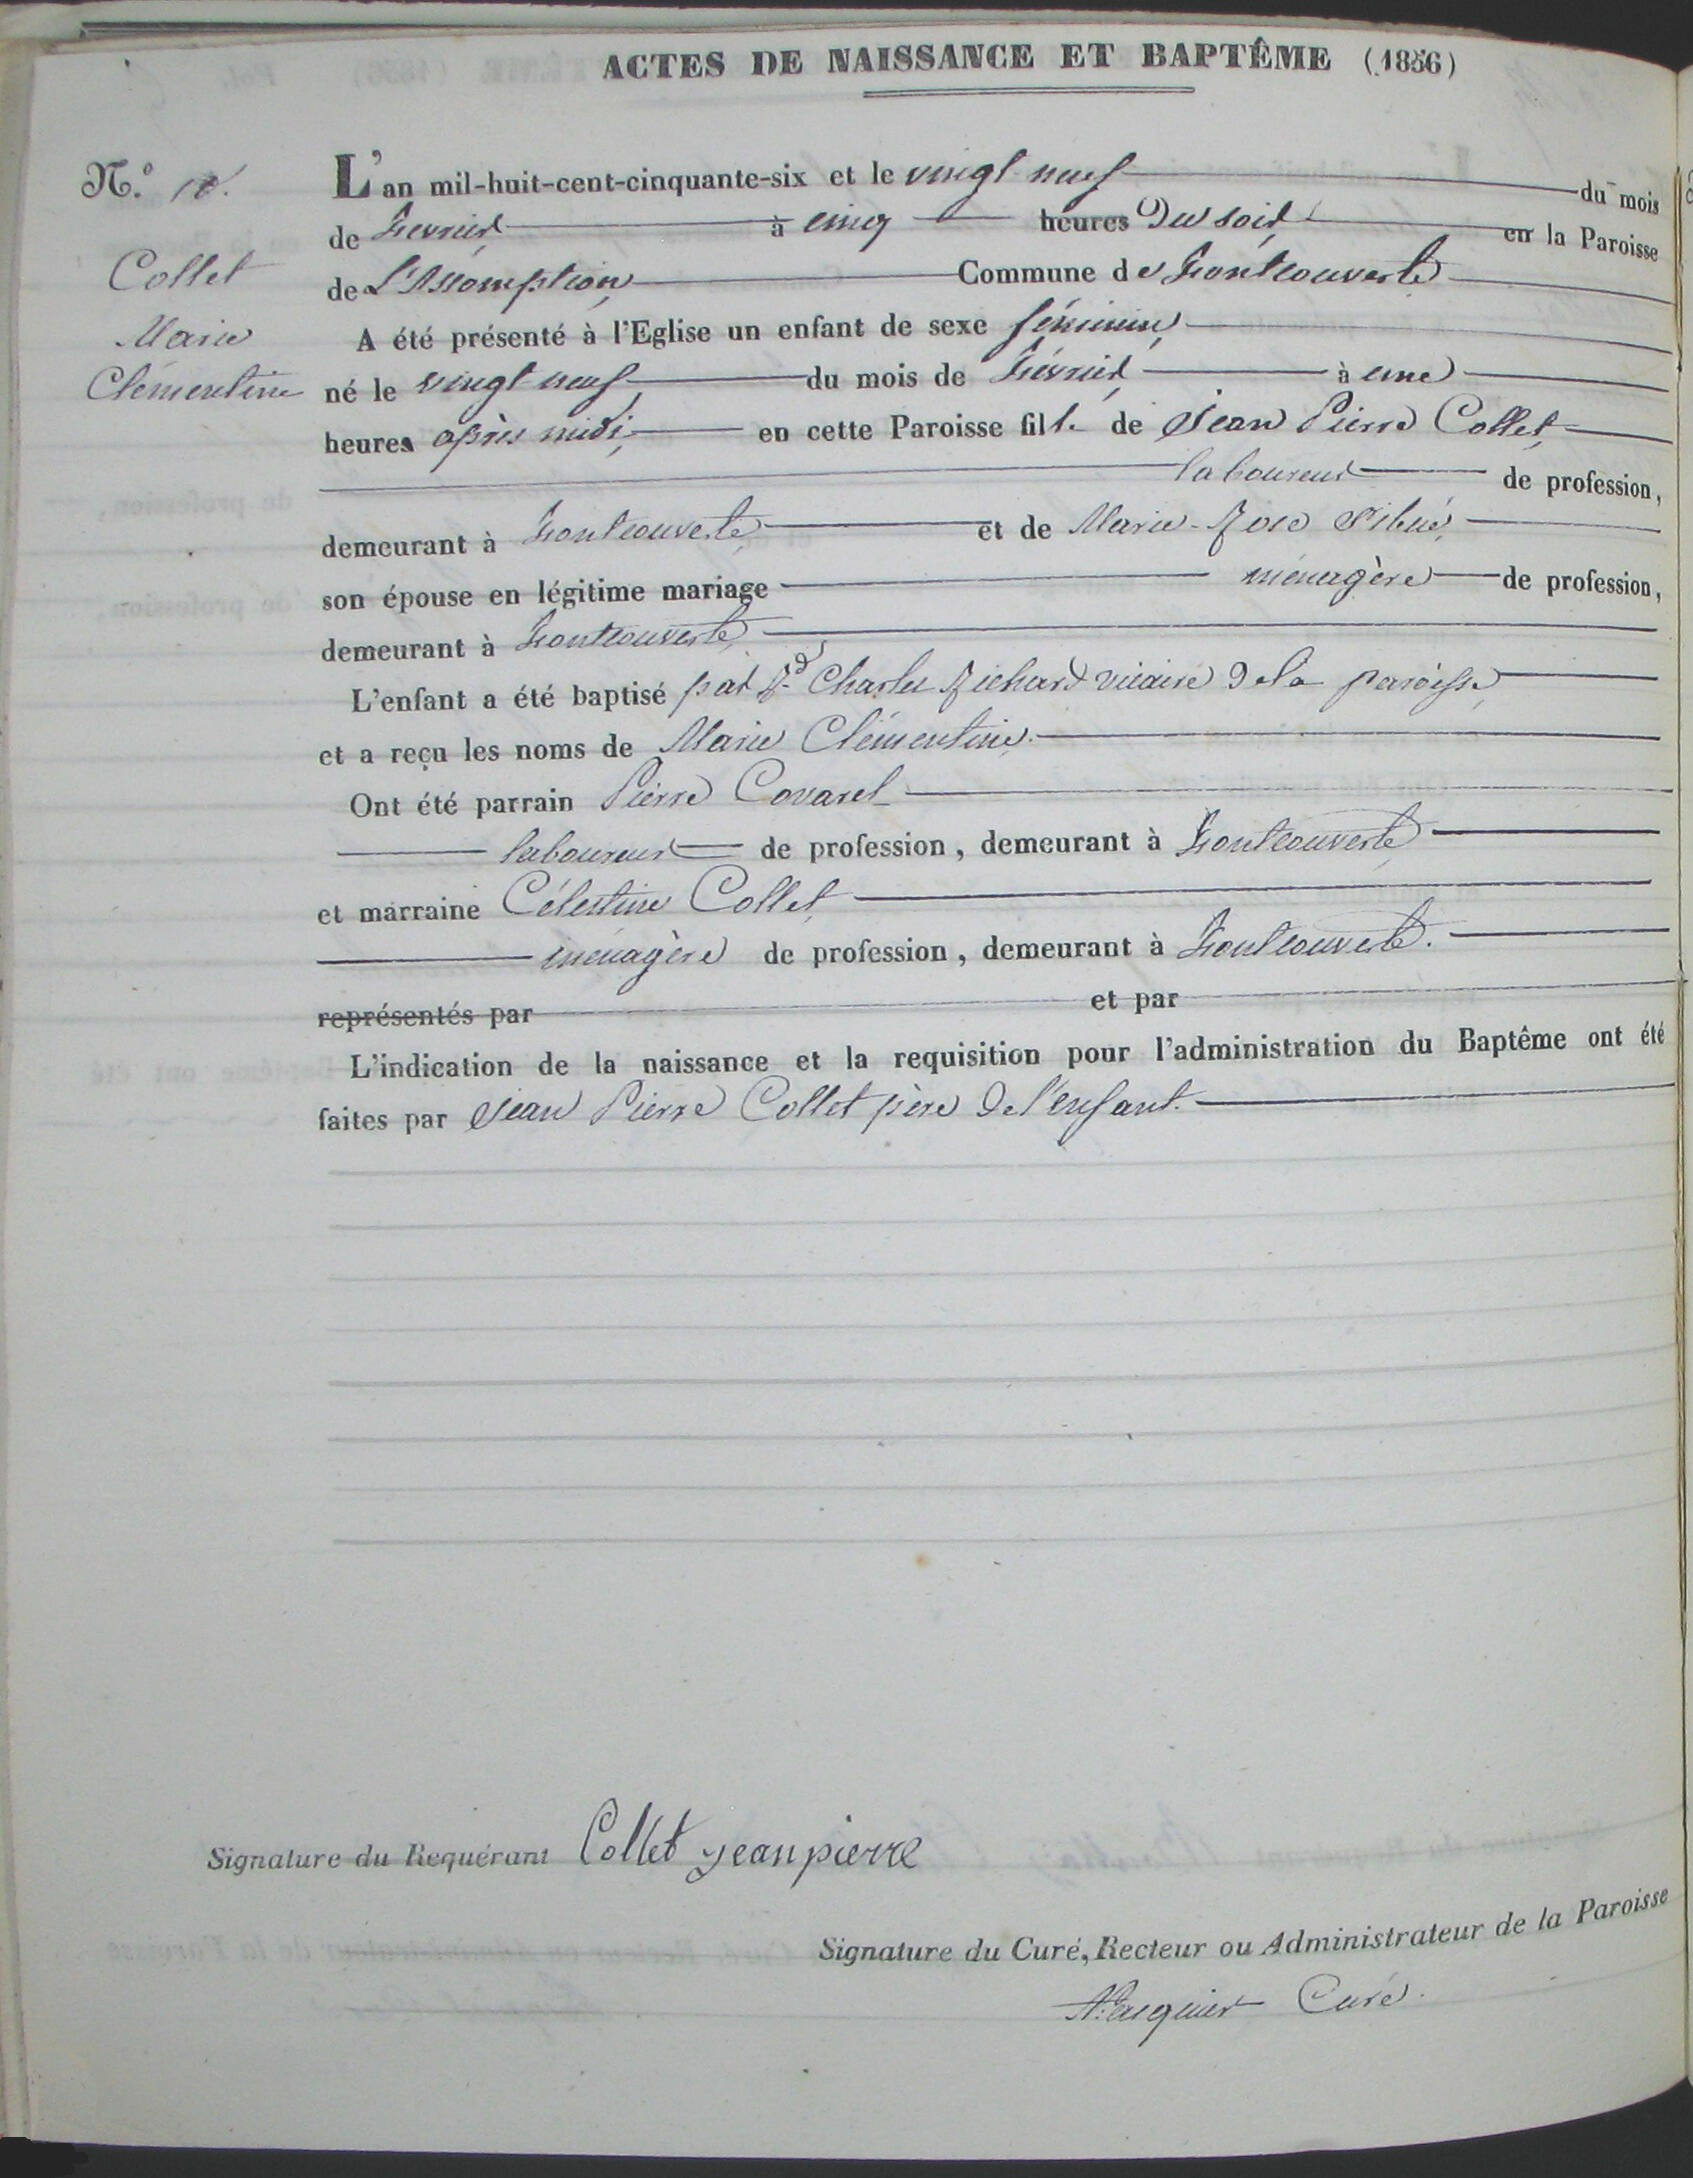 ACTES DE NAISSANCE ET BAPTÊME (1856)
N.º
L'an mil-huit-cent-cinquante-six et le vingt neuf du mois
de Fevrier à cinq heures Du soir en la Paroisse
Collet
de L'Assomption Commune de Fontcouverte
Marie
A été présenté à l'Eglise un enfant de sexe féminin,
Clémentine
né le vingt neuf du mois de Février à une
heures après midi, en cette Paroisse fille de Jean Pierre Collet,
laboureur de profession,
demeurant à Fontcouverte, et de Marie-Rose Sibué,
son épouse en légitime mariage ménagère de profession,
demeurant à Fontcouverte,
L'enfant a été baptisé par Rd Charles Richard vicaire De la paroisse,
et a reçu les noms de Marie Clémentine.
Ont été parrain Pierre Covarel
laboureur de profession, demeurant à Fontcouverte
et marraine Célestine Collet,
ménagère de profession, demeurant à Fontcouverte.
représentés par et par
L'indication de la naissance et la requisition pour l'administration du Baptême ont été
faites par Jean Pierre Collet père De l'enfant.
Signature du Requérant Collet jean pierre
Signature du Curé, Recteur ou Administrateur de la Paroisse
Curé.